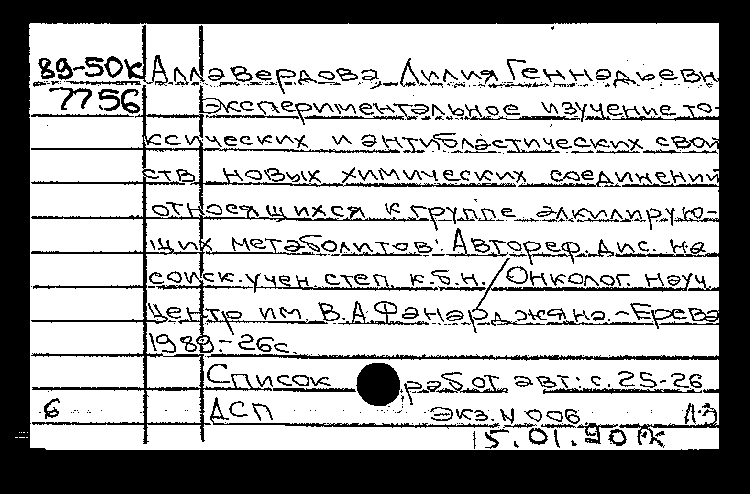 89-50К Аллавердова, Лилия Геннадьевн
7756 Экспериментальное изучение то-
ксических и антибластических свой
ств новых химических соединений
относящихся к группе алкилирую-
щих метаболитов: Автореф. дис. на
соиск. учен. степ. к.б.н. / Онколог. науч.
центр им. В.А. Фанарджяна. - Ерева
1989. - 26с.
Список работ авт.: с. 25-26
6 ДСП Экз. N 006 ЛЗ
15.01.90